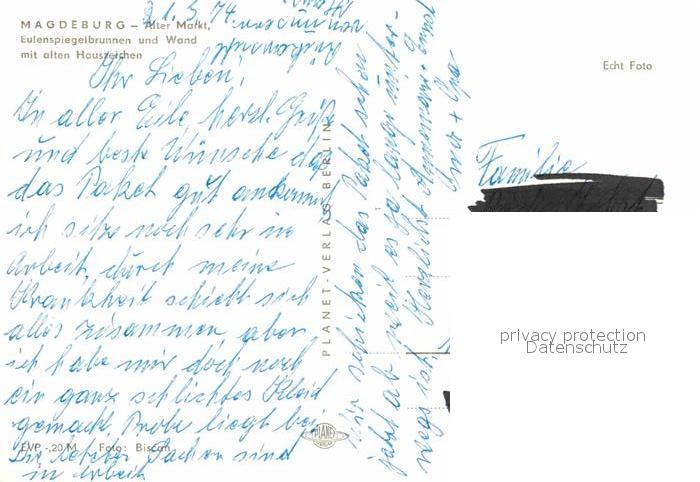 MAGDEBURG – Alter Markt,
Eulenspiegelbrunnen und Wand
mit alten Hauszeichen
Echt Foto
Ihr Lieben!
In aller Eile herzl. Grüße
und beste Wünsche daß
das Paket gut ankommt
ich sitze noch sehr in
Arbeit, durch meine
Krankheit schiebt sich
alles zusammen aber
ich habe mir doch noch
ein ganz schlichtes Kleid
gemacht Probe liegt bei
Die letzten Sachen sind
in Arbeit
wir schicken das Paket schon
jetzt ab weil es so lange unter-
wegs ist Herzlichst Annemarie Ernst
+ Opa
Familie
PLANET-VERLAG BERLIN
PLANET
VERLAG
EVP -,20 M Foto: Biscan
privacy protection
Datenschutz